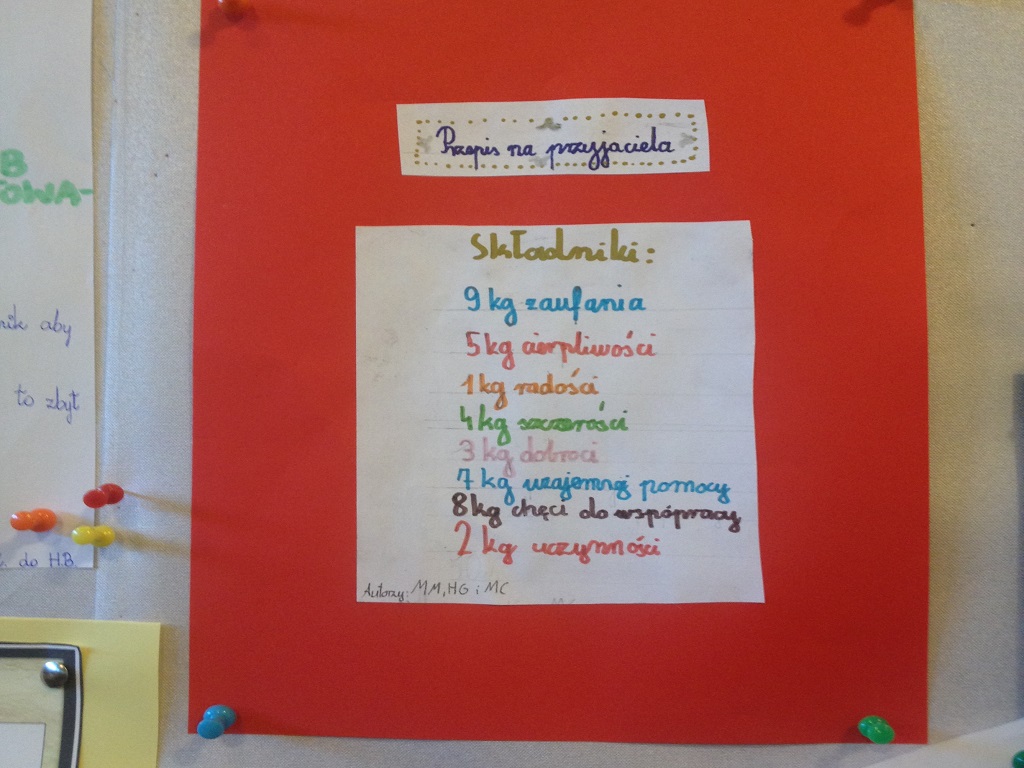 Przepis na przyjaciela
Składniki:
9 kg zaufania
5 kg cierpliwości
1 kg radości
4 kg szczerości
3 kg dobroci
7 kg wzajemnej pomocy
8 kg chęci do wspópracy
2 kg uczynności
Autorzy: MM, HG i MC
B
TOWA-
nik aby
to zbyt
do H.B.